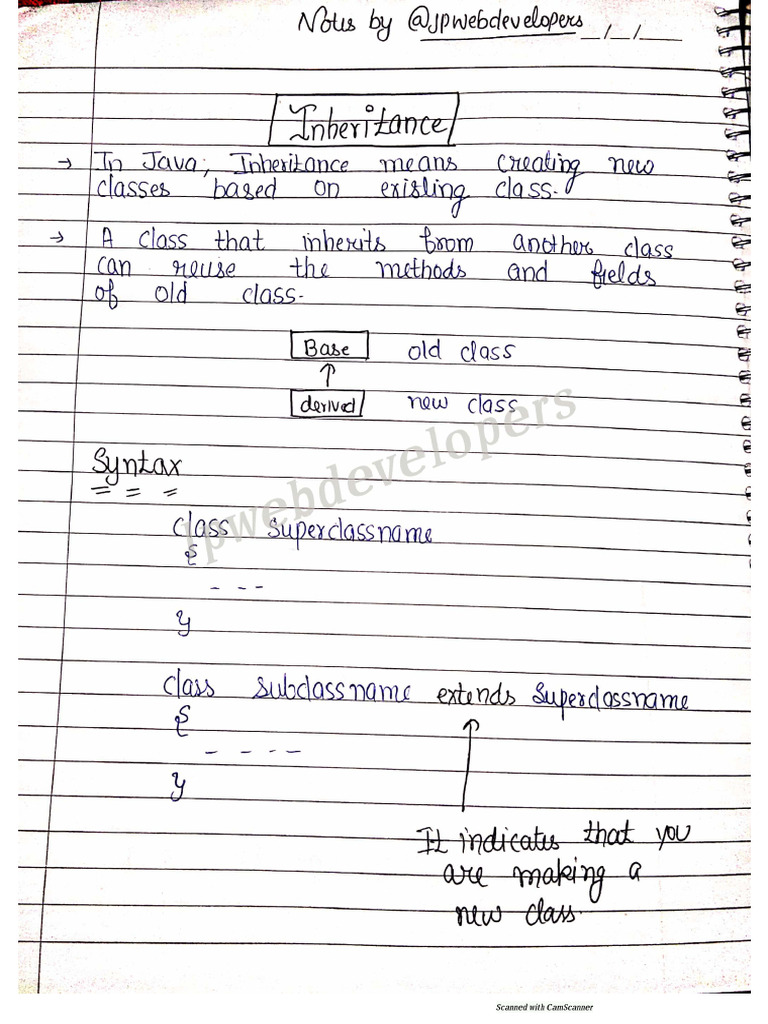 Notes by @jpwebdevelopers _/_/__
Inheritance
→ In Java, Inheritance means creating new
classes based on existing class.
→ A class that inherits from another class
can reuse the methods and fields
of old class.
Base old class
↑
derived new class
jpwebdevelopers
Syntax
class Superclassname
{
- - -
}
class Subclassname extends Superclassname
{
- - - -
}
It indicates that you
are making a
new class.
Scanned with CamScanner